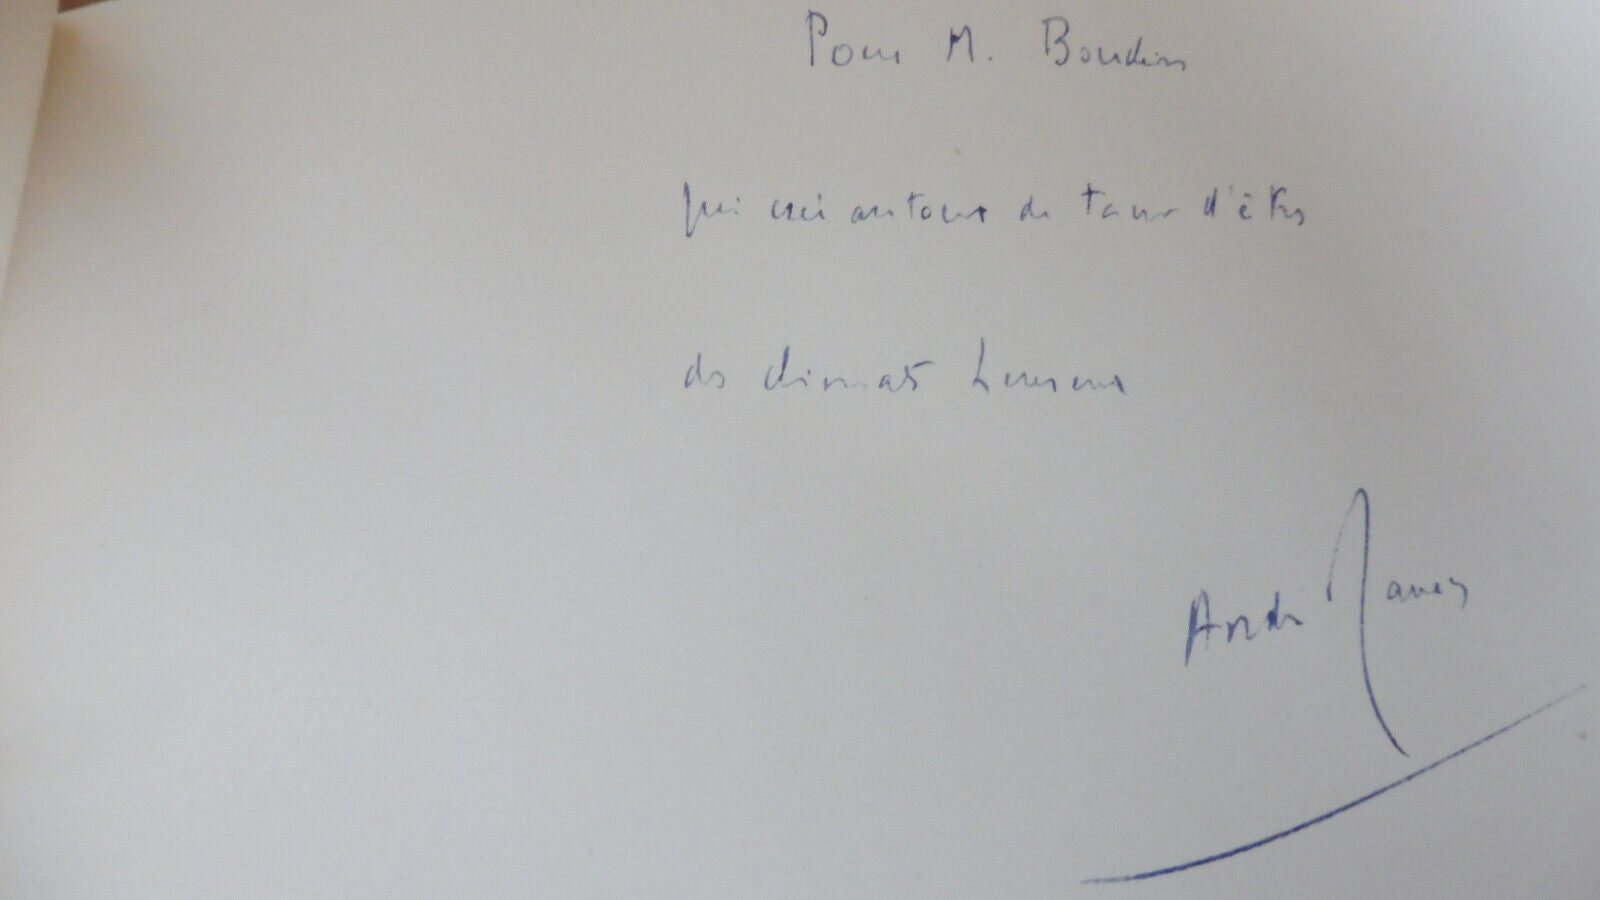 Pour M. Boudin
qui crée autour de tant d'êtres
des climats heureux
André Maurois